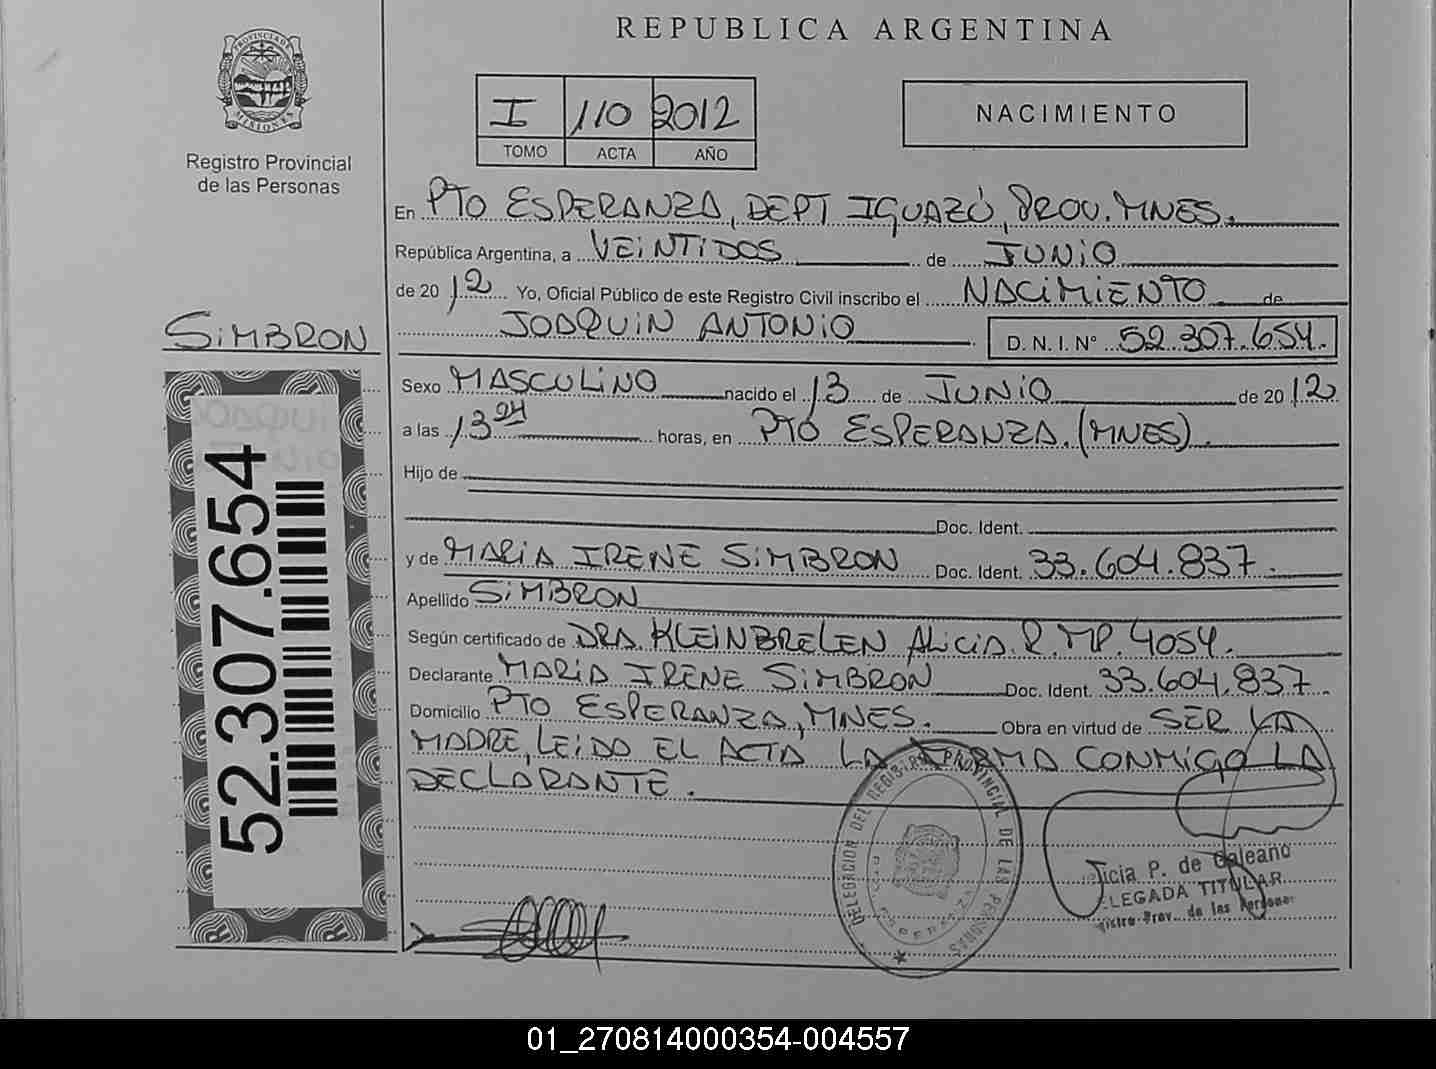 REPUBLICA ARGENTINA
PROVINCIA DE MISIONES
Registro Provincial
de las Personas
I 110 2012
TOMO ACTA AÑO
NACIMIENTO
En PTO ESPERANZA, DEPT IGUAZÚ, PROV. MNES.
República Argentina, a VEINTIDOS de JUNIO
de 2012 Yo, Oficial Público de este Registro Civil inscribo el NACIMIENTO de
JOAQUIN ANTONIO D. N. I. N° 52.307.654.
SIMBRON
Sexo MASCULINO nacido el 13 de JUNIO de 2012
a las 13 24 horas, en PTO ESPERANZA. (MNES).
Hijo de
Doc. Ident.
y de MARIA IRENE SIMBRON Doc. Ident. 33.604.837.
Apellido SIMBRON
Según certificado de DRA. KLEINBRELEN ALICIA. R. MP. 4054.
Declarante MARIA IRENE SIMBRON Doc. Ident. 33.604.837
Domicilio PTO ESPERANZA, MNES. Obra en virtud de SER LA
MADRE, LEIDO EL ACTA LA FIRMA CONMIGO LA
DECLARANTE.
52.307.654
DELEGACION DEL REGISTRO PROVINCIAL DE LAS PERSONAS
P. de Galeano
DELEGADA TITULAR
Prov. de las Personas
01_270814000354-004557